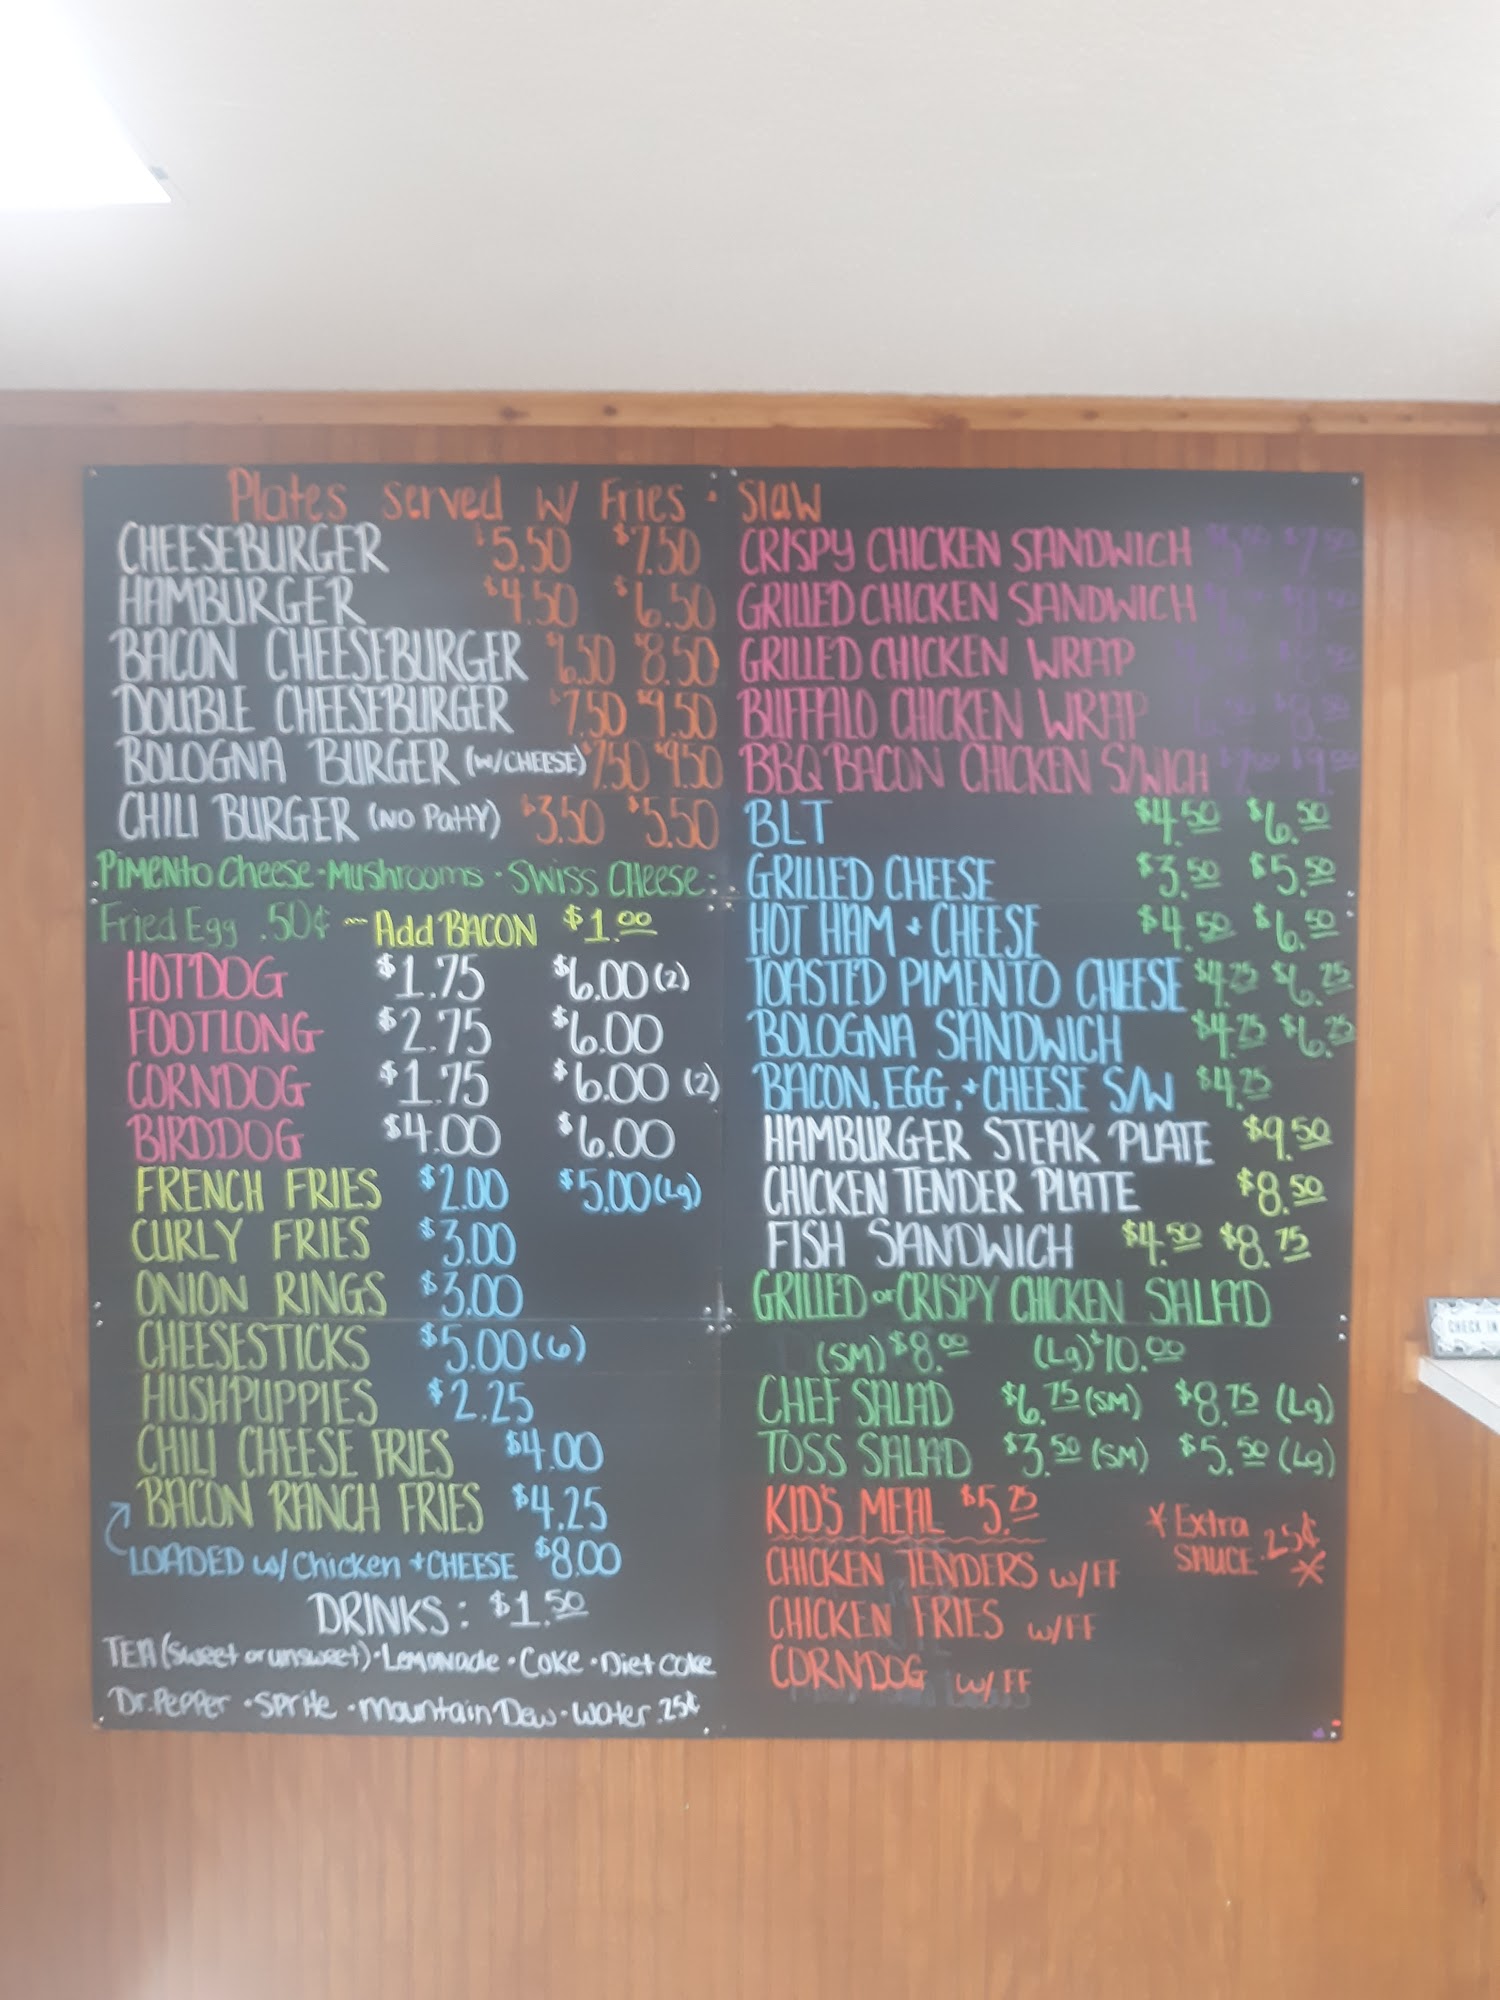 Plates Served w/ Fries • Slaw
CHEESEBURGER $5.50 $7.50
HAMBURGER $4.50 $6.50
BACON CHEESEBURGER $6.50 $8.50
DOUBLE CHEESEBURGER $7.50 9.50
BOLOGNA BURGER (w/CHEESE) $7.50 $9.50
CHILI BURGER (NO PATTY) $3.50 $5.50
Pimento Cheese • Mushrooms • Swiss Cheese •
Fried Egg .50¢ ~ Add BACON $1.00
HOTDOG $1.75 $6.00 (2)
FOOTLONG $2.75 $6.00
CORNDOG $1.75 $6.00 (2)
BIRDDOG $4.00 $6.00
FRENCH FRIES $2.00 $5.00 (Lg)
CURLY FRIES $3.00
ONION RINGS $3.00
CHEESESTICKS $5.00 (6)
HUSHPUPPIES $2.25
CHILI CHEESE FRIES $4.00
BACON RANCH FRIES $4.25
LOADED w/ Chicken + CHEESE $8.00
DRINKS: $1.50
TEA (sweet or unsweet) • Lemonade • Coke • Diet Coke
Dr. Pepper • Sprite • Mountain Dew • Water .25¢
CRISPY CHICKEN SANDWICH
GRILLED CHICKEN SANDWICH
GRILLED CHICKEN WRAP
BUFFALO CHICKEN WRAP
BBQ BACON CHICKEN S/WICH
BLT $4.50 $6.50
GRILLED CHEESE $3.50 $5.50
HOT HAM + CHEESE $4.50 $6.50
TOASTED PIMENTO CHEESE $4.25 $6.25
BOLOGNA SANDWICH $4.25 $6.25
BACON, EGG, + CHEESE S/W $4.25
HAMBURGER STEAK PLATE $9.50
CHICKEN TENDER PLATE $8.50
FISH SANDWICH $4.50 $8.75
GRILLED or CRISPY CHICKEN SALAD
(SM) $8.00 (Lg) $10.00
CHEF SALAD $6.75 (SM) $8.75 (Lg)
TOSS SALAD $3.50 (SM) $5.50 (Lg)
KID'S MEAL $5.75
* Extra SAUCE .25¢ *
CHICKEN TENDERS w/FF
CHICKEN FRIES w/FF
CORNDOG w/FF
CHECK IN